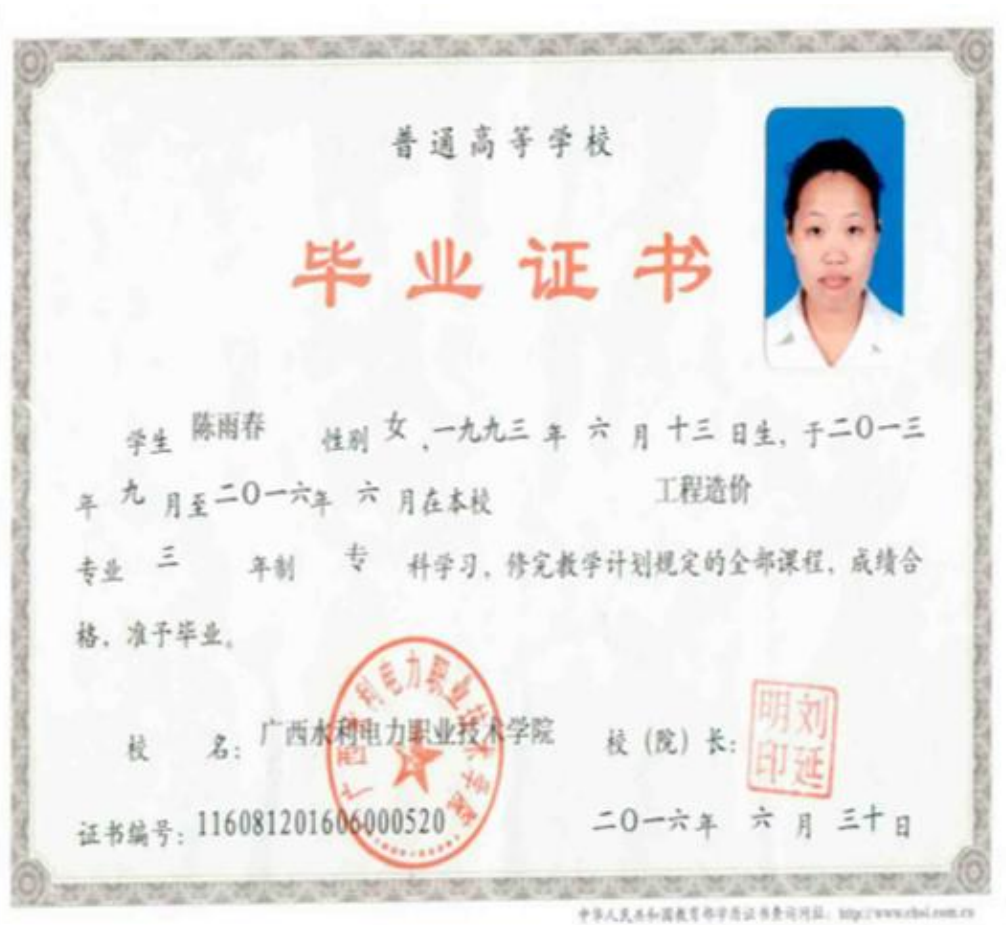 普通高等学校
毕业证书
学生 陈雨春 性别 女、一九九三 年 六 月 十三 日生，于二〇一三
年 九 月至二〇一六年 六 月在本校 工程造价
专业 三 年制 专 科学习，修完教学计划规定的全部课程，成绩合
格，准予毕业。
校 名：广西水利电力职业技术学院 校（院）长：
刘延明印
广西水利电力职业技术学院
证书编号：116081201606000520 二〇一六年 六 月 三十 日
中华人民共和国教育部学历证书查询网址：http://www.chsi.com.cn